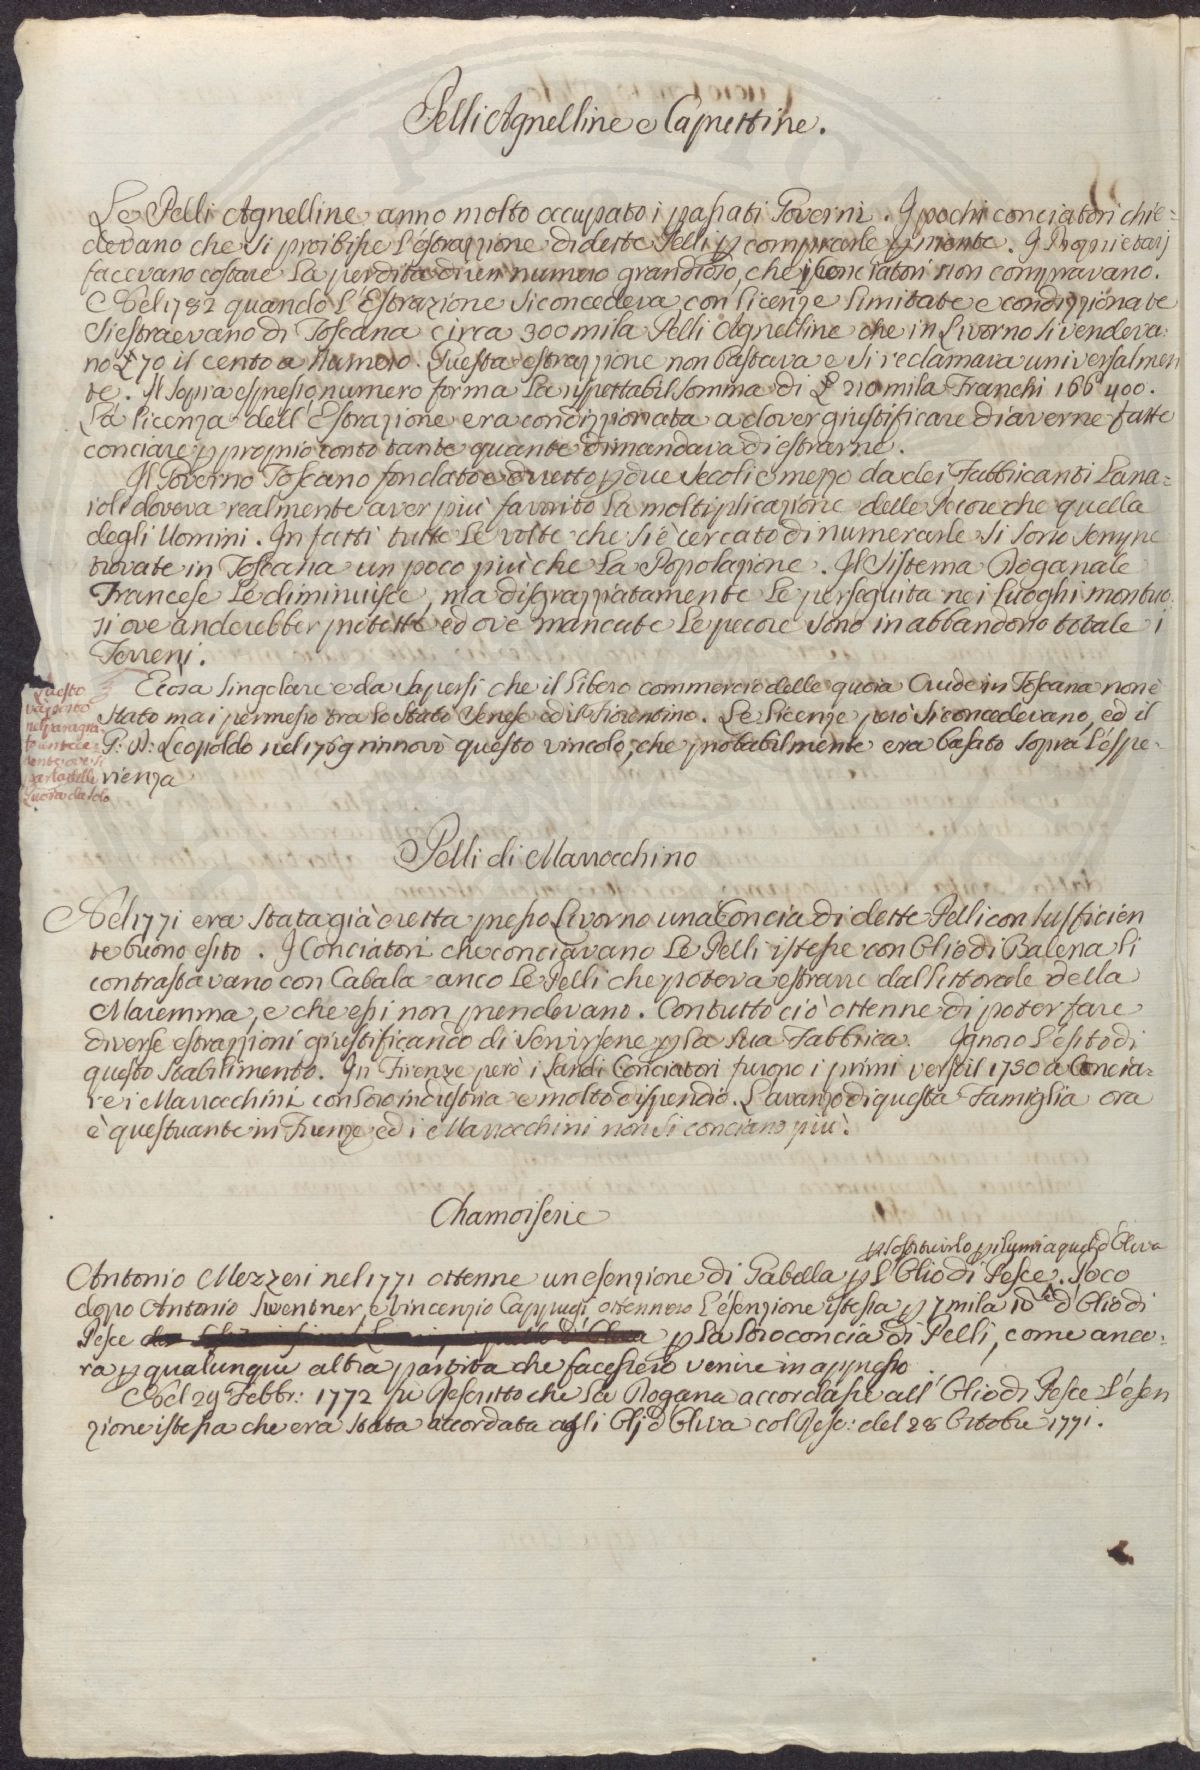 Pelli Agnelline e Caprettine.
Le Pelli Agnelline anno molto occupato i passati Governi. I pochi conciatori chie=
devano che si proibisse l'estrazzione di dette Pelli p comprarle p niente. I Proprietarj
facevano costare la perdita di un numero grandioso, che i Conciatori non compravano.
Nel 1782 quando l'Estrazione si concedeva con licenze limitate e condizzionate
si estraevano di Toscana circa 300 mila Pelli Agnelline che in Livorno si vendeva:
no £ 70 il cento a Numero. Questa estrazzione non bastava e si reclamava universalmen
te. Il sopra espresso numero forma la rispettabil somma di £ 210 mila Franchi 166 400.
La licenza dell'Estrazione era condizzionata a dover giustificare di averne fatte
conciare p proprio conto tante quante dimandava di estrarne.
Il Governo Toscano fondato e diretto p due secoli e mezzo da dei Fabbricanti Lana=
ioli doveva realmente aver più favorito la moltiplicazione delle Pecore che quella
degli Uomini. In fatti tutte le volte che si è cercato di numerarle si sono sempre
trovate in Toscana un poco più che la Popolazione. Il Sistema Doganale
Francese le diminuisce, ma disgraziatamente le perseguita nei luoghi montuo
si ove anderebber protette ed ove mancate le pecore sono in abbandono totale i
Terreni.
E cosa singolare e da sapersi che il libero commercio delle quoia Crude in Toscana non è
stato mai permesso tra lo Stato Senese ed il Fiorentino. Le licenze però si concedevano, ed il
G: D: Leopoldo nel 1769 rinnovò questo vincolo, che probabilmente era basato sopra l'espe=
rienza
Questo
va posto
nel paragra
fo antece
dente ove si
parla delle
Quoia da solo
Pelli di Marrocchino
Nel 1771 era stata già eretta presso Livorno una Concia di dette Pelli con sufficien
te buono esito. I Conciatori che conciavano le Pelli istesse con Olio di Balena li
contrastavano con Cabala anco le Pelli che poteva estrarre dal littorale della
Maremma, e che essi non prendevano. Con tutto ciò ottenne di poter fare
diverse estrazzioni giustificando di servirsene p la sua Fabbrica. Ignoro l'esito di
questo stabilimento. In Firenze però i Landi Conciatori furono i primi verso il 1750 a Concia=
re i Marrocchini con loro industria e molto dispendio. L'avanzo di questa Famiglia ora
è questuante in Firenze ed i Marrocchini non si conciano più.
Chamoiserie
p sostituirlo p i lumi a quel d'Oliva
Antonio Mezzeri nel 1771 ottenne un esenzione di Gabella p l'Olio di Pesce. Poco
dopo Antonio Swentner, e Vincenzio Cappugi ottennero l'esenzione istessa p 7 mila d'Olio di
Pesce p la loro concia di Pelli, come anco:
ra p qualunque altra partita che facessero venire in appresso
Nel 29 Febbr: 1772 fu Rescritto che la Dogana accordasse all'Olio di Pesce l'esen
zione istessa che era stata accordata agli Olj d'Oliva col Resc: del 28 Ottobre 1771.